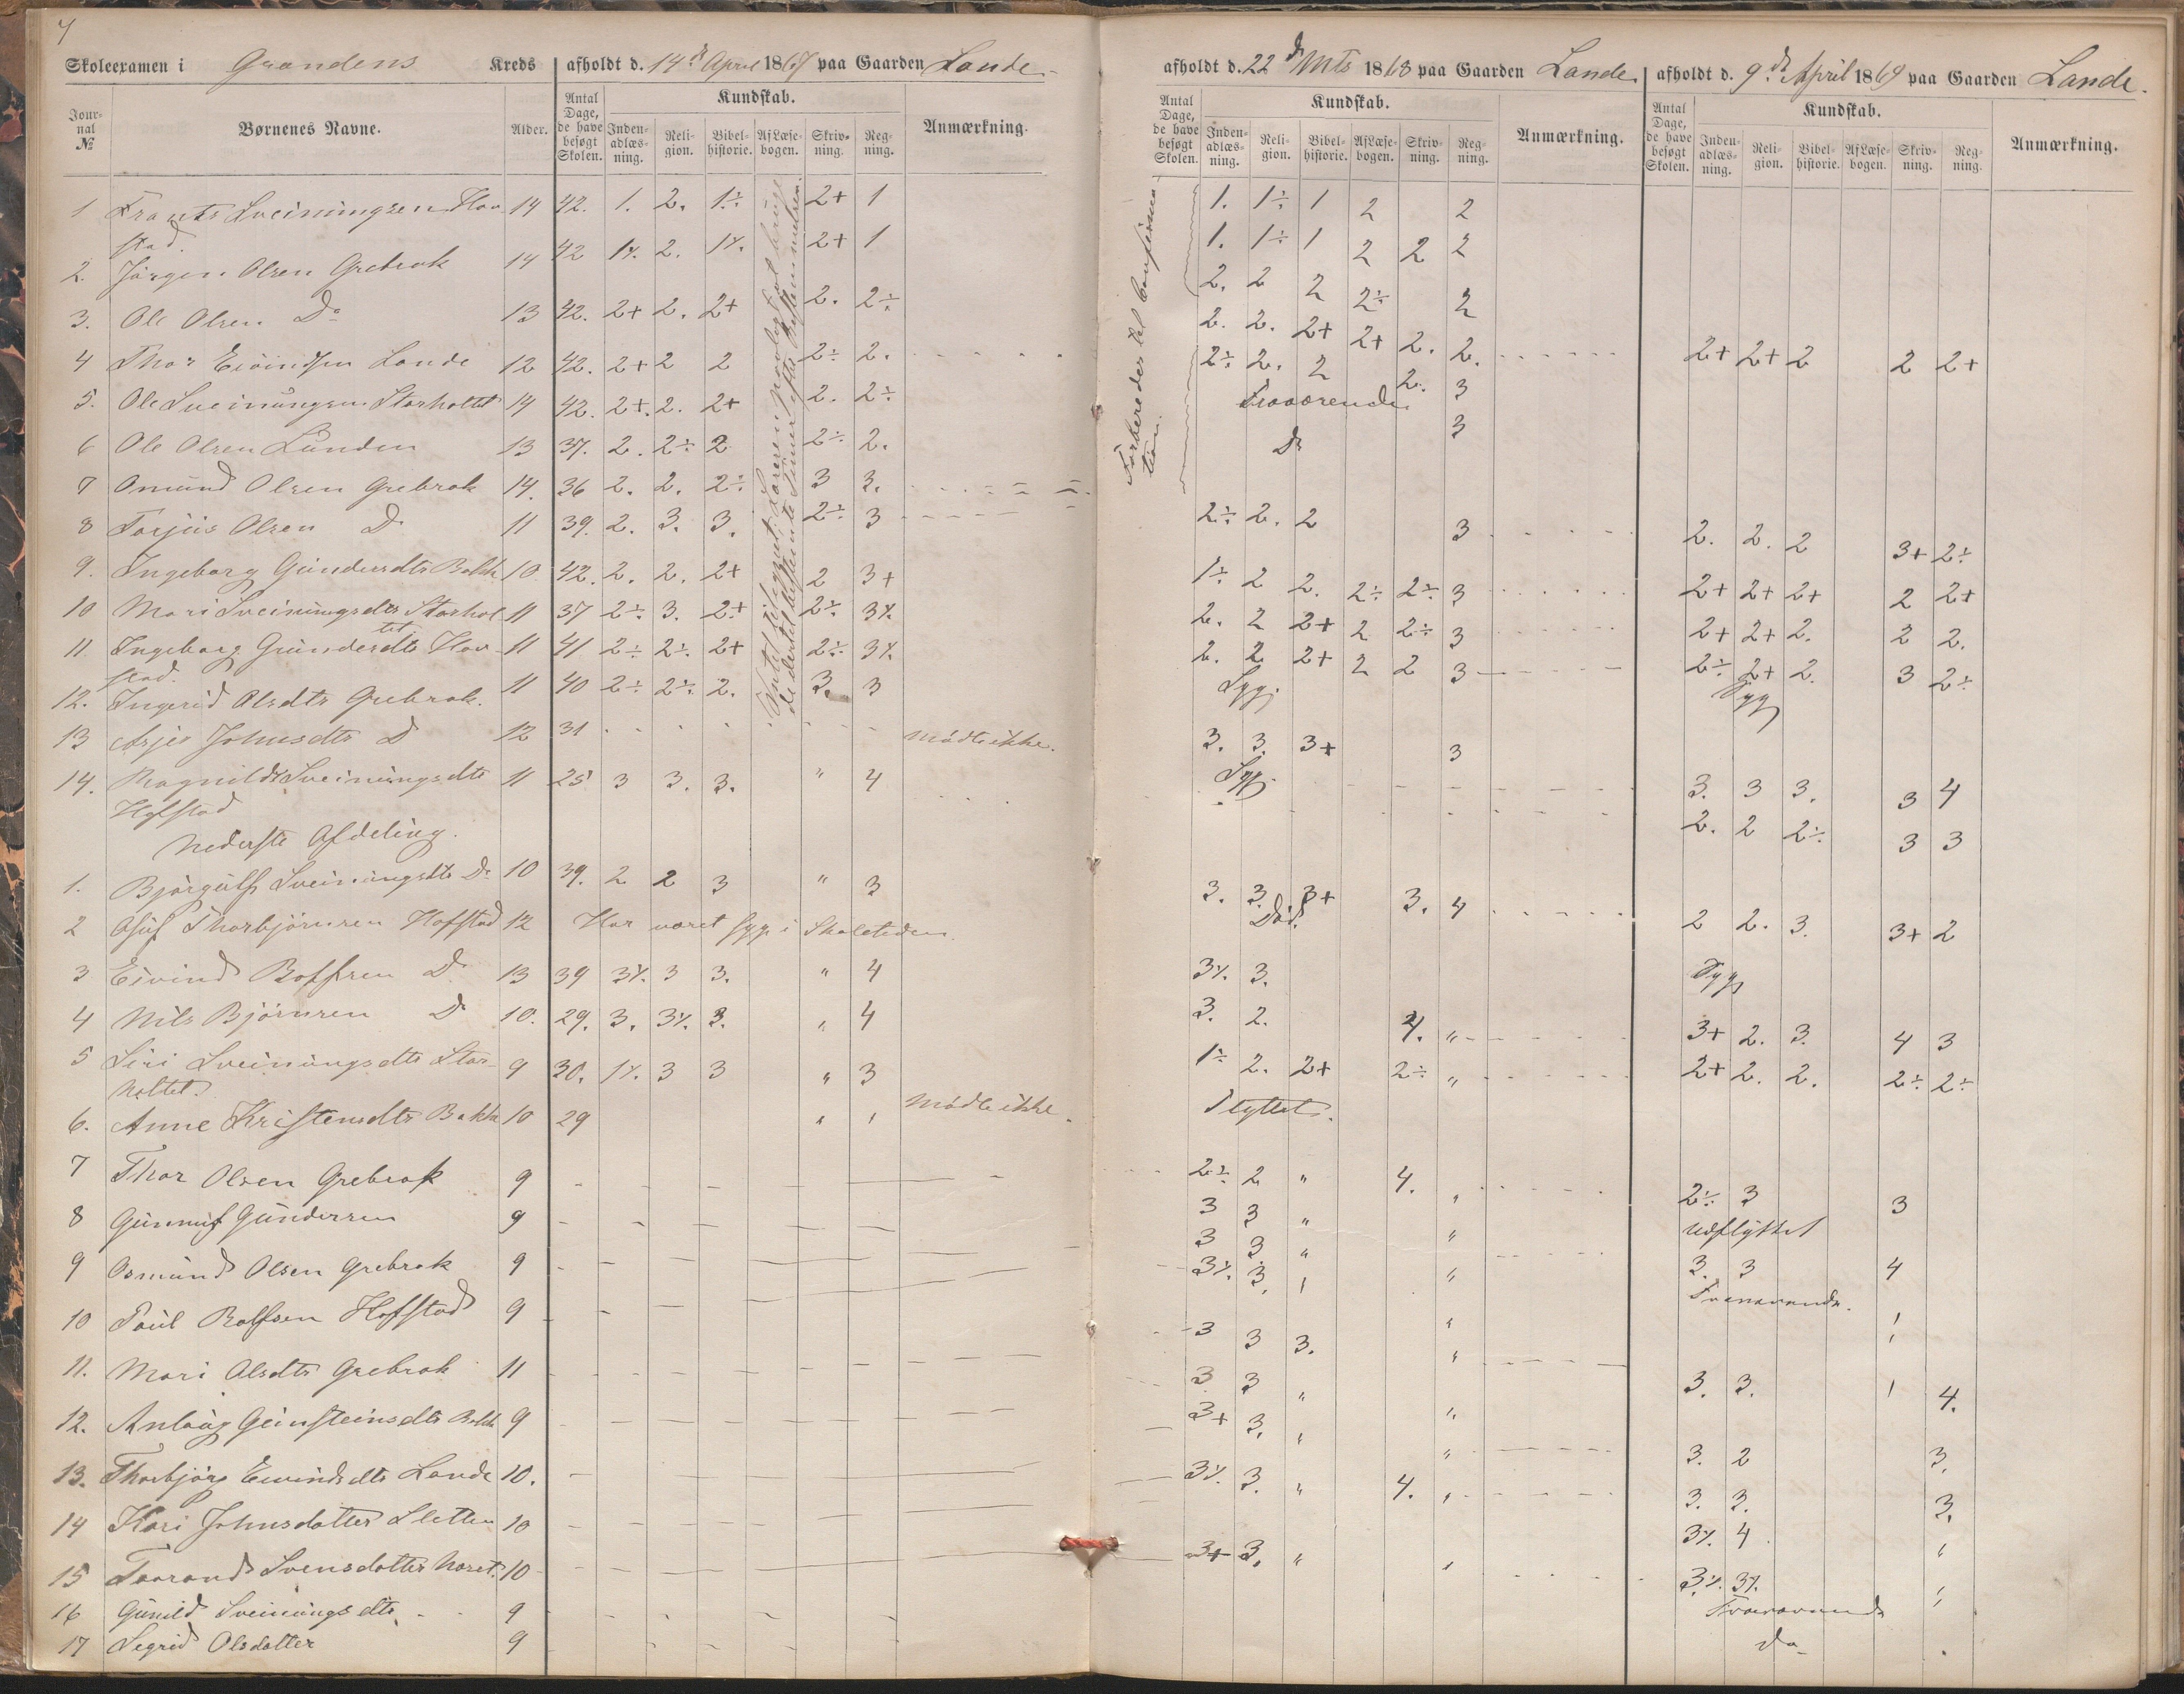 7
Skoleexamen i Grandens Kreds afholdt d. 14de April 1867 paa Gaarden Lande
Jour-nal № Børnenes Navne. Alder. Antal Dage, de have besøgt Skolen. Kundskab. Inden-adlæs-ning. Reli-gion. Bibel-historie. Af Læse-bogen. Skriv-ning. Reg-ning. Anmærkning.
1 Frants Sveiningsen Hov- 14 42. 1. 2. 1÷ 2+ 1
stad.
2. Jörgen Olsen Grebrok 14 42 1÷ 2. 1÷ 2+ 1
3. Ole Olsen Do 13 42. 2+ 2. 2+ 2. 2÷
4 Thor Eivindsen Lande 12 42. 2+ 2 2 2÷ 2.
5. Ole Sveinungsen Storholtet 14 42. 2+. 2. 2+ 2. 2÷
6 Ole Olsen Lunden 13 37. 2. 2÷ 2 2÷ 2.
7 Omund Olsen Grebrok 14. 36 2. 2. 2÷ 3 3.
8 Torjus Olsen Do 11 39. 2. 3. 3. 2÷ 3
9. Ingeborg Gundersdtr Bakk 10 42. 2. 2. 2+ 2 3+
10 Mari Sveinungsdtr Storhol 11 37 2÷ 3. 2+ 2÷ 3÷
tet
11. Ingeborg Gundersdtr Hov- 11 41 2÷ 2÷ 2+ 2÷ 3÷
stad.
12. Ingerid Olsdtr Grebrok. 11 40 2÷ 2÷ 2. 3. 3
13 Asjer Johnsdtr D 12 31 mödte ikke.
14. Ragnild Sveinungsdtr 11 25 3 3. 3. " 4
Hofstad
Nederste Afdeling.
1. Björgulf Sveinungsdtr Do 10 39. 2 2 3 " 3
2 Thorbjörnsen Hofstad 12 Har været syg i Skoletiden.
3 Eivind Rolfsen Do 13 39 3÷ 3 3. " 4
4 Nils Björnsen Do 10. 29. 3. 3÷ 3. " 4
5 Siri Sveinungsdtr Stor- 9 30. 1÷ 3 3 " 3
holtet.
6. Anne Kristensdtr Bakk 10 29 " " mödte ikke.
7 Thor Olsen Grebrok 9
8 Gunnuf Gundersen 9
9 Osmund Olsen Grebrok 9
10 Paul Rolfsen Hofstad 9
11. Mari Olsdtr Grebrok 11
12. Anlaug Geirsteinsdtr Bakk 9
13. Thorbjörg Eivindsdtr Lande 10.
14 Kari Johnsdotter Sletten 10
15 Taarand Svensdotter 10
16 Gunild Sveinungsdtr 9
17 Segrid Olsdatter 9
afholdt d. 22de Mts 1868 paa Gaarden Lande
Antal Dage, de have besøgt Skolen. Kundskab. Inden-adlæs-ning. Reli-gion. Bibel-historie. Af Læse-bogen. Skriv-ning. Reg-ning. Anmærkning.
Forbereder til Confirma-
tion.
1. 1÷ 1 2 2
1. 1÷ 1 2 2 2
2. 2 2 2÷ 2
2. 2. 2+ 2+ 2. 2.
2÷ 2. 2 2. 3
Fraværende 3
Do
2÷ 2. 2 3
1÷ 2 2. 2÷ 2÷ 3
2. 2 2+ 2 2÷ 3
2. 2 2+ 2 2 3
Syg.
3. 3. 3+ 3
Syg.
3. 3. 3+ 3. 4
Död.
3÷ 3.
3. 2. 4. "
1÷ 2. 2+ 2÷ "
Flyttet.
2÷ 2 " 4. "
3 3 " "
3 3 " "
3÷ 3. "
3 3 3. "
3 3 " "
3+ 3. " "
3÷ 3. " 4. "
3+ 3. " "
afholdt d. 9de April 1869 paa Gaarden Lande.
Antal Dage, de have besøgt Skolen. Kundskab. Inden-adlæs-ning. Reli-gion. Bibel-historie. Af Læse-bogen. Skriv-ning. Reg-ning. Anmærkning.
2+ 2+ 2 2 2+
2. 2. 2 3+ 2÷
2+ 2+ 2+ 2 2+
2+ 2+ 2. 2 2.
2÷ 2+ 2. 3 2÷
Syg
3. 3 3. 3 4
2. 2 2÷ 3 3
2 2. 3. 3+ 2
Syg
3+ 2. 3. 4 3
2+ 2. 2. 2÷ 2÷
2÷ 3 3
Udflyttet
3. 3 4
Fraværende.
3. 3. 4.
3. 2 3.
3. 3. 3.
3÷ 4 "
3÷ 3÷
Fraværende
do